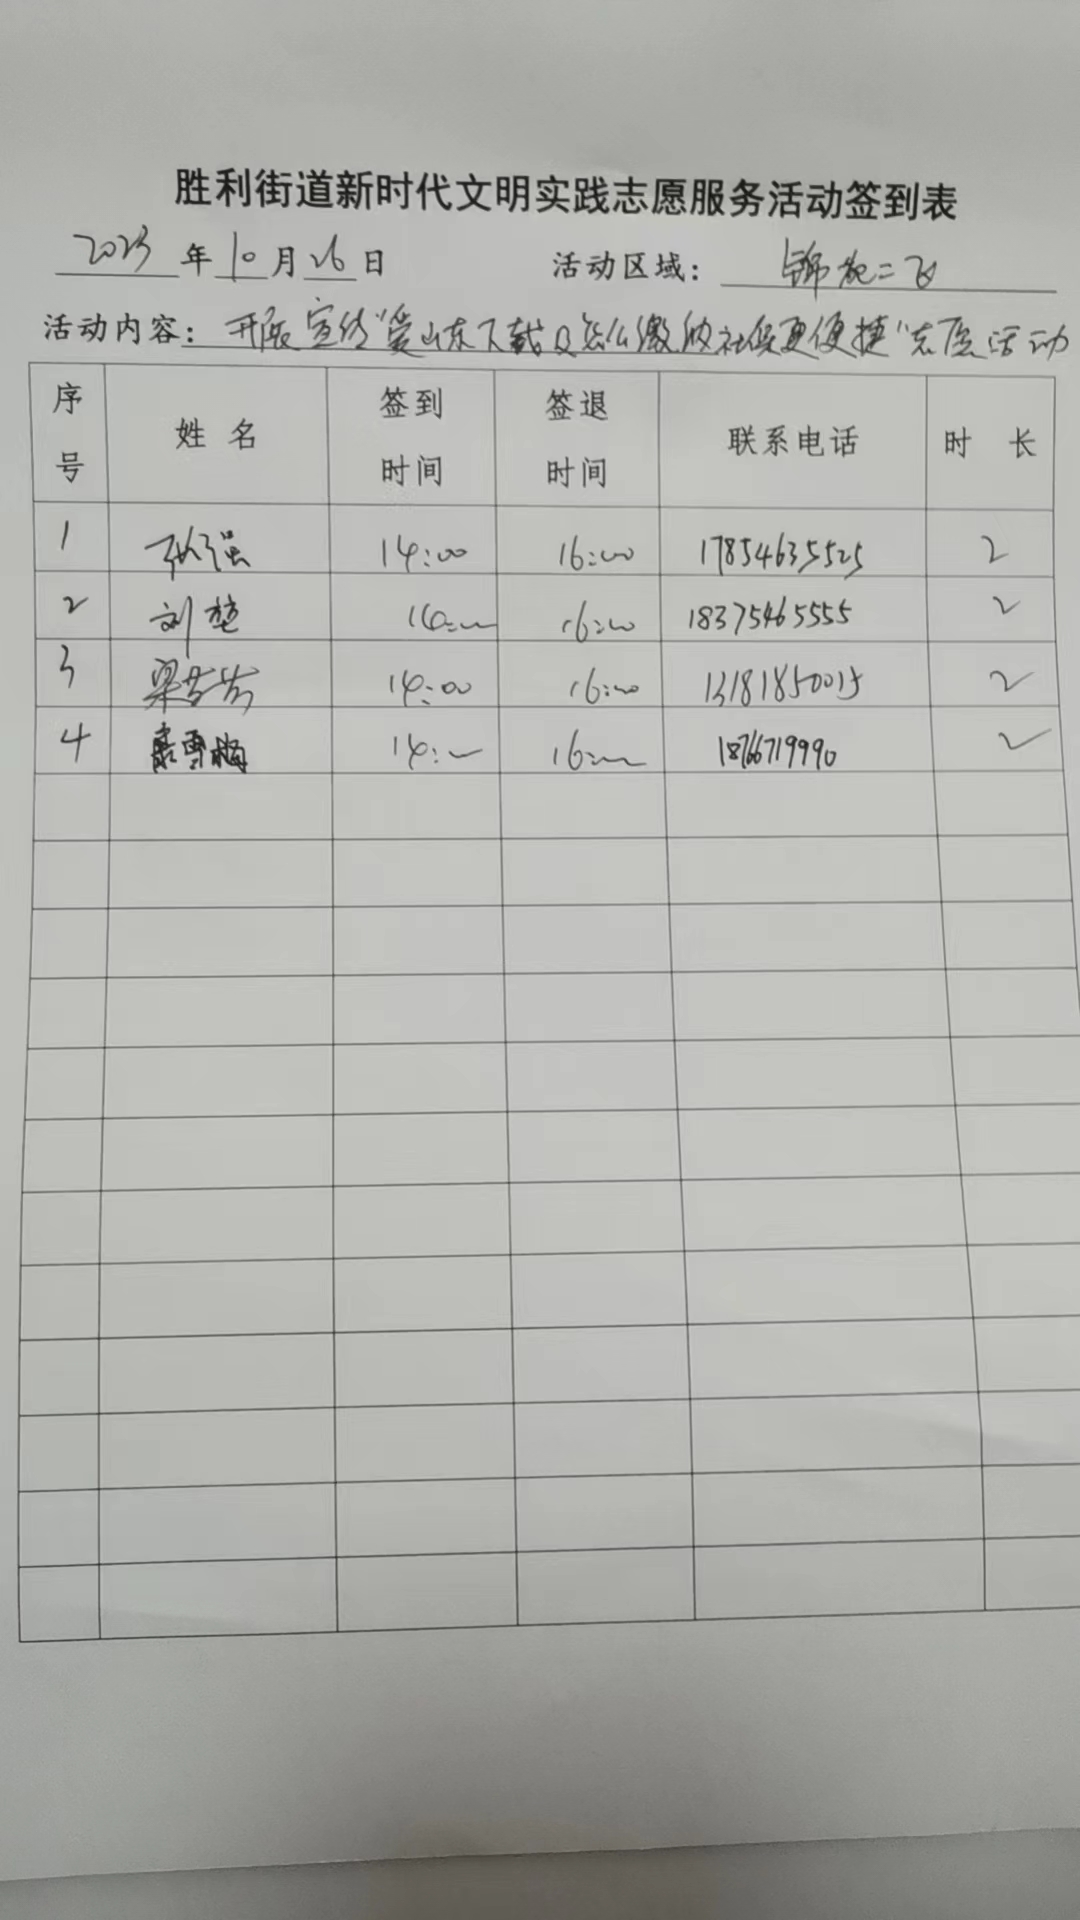 胜利街道新时代文明实践志愿服务活动签到表
2023 年 10 月 26 日 活动区域: 锦苑二区
活动内容: 开展宣传"爱山东下载及怎么缴纳社保更便捷"志愿活动
序号 姓名 签到时间 签退时间 联系电话 时长
1 张强 14:00 16:00 17854635525 2
2 刘楚 14:00 16:00 18375465555 2
3 梁芳芳 14:00 16:00 13181850015 2
4 雪梅 14:00 16:00 18766719990 2